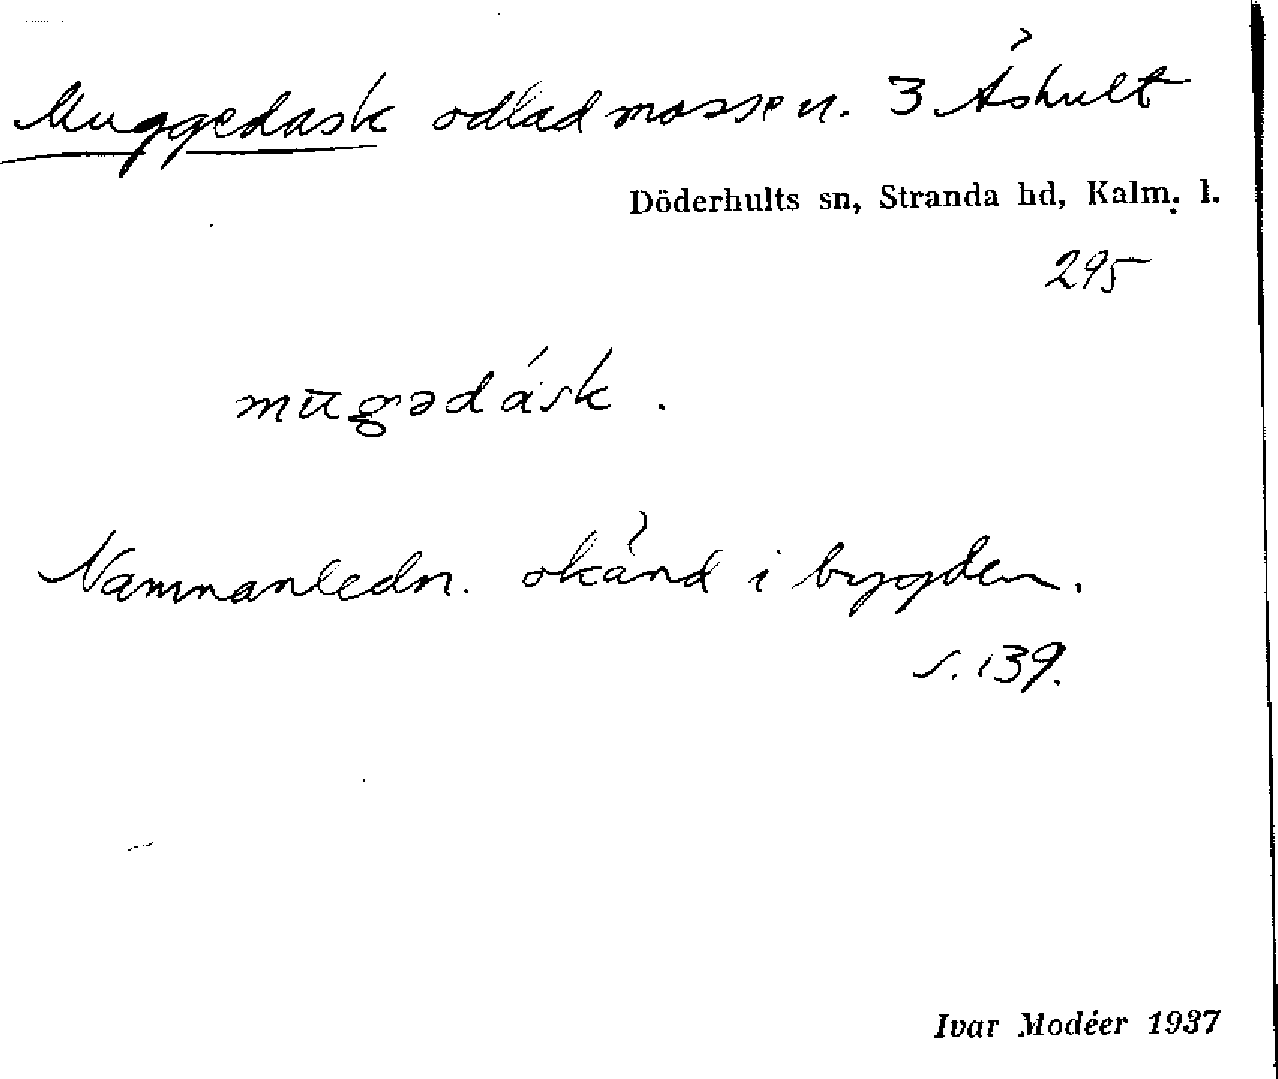 Muggedask odlad mosse n. 3 Åshult
Döderhults sn, Stranda hd, Kalm. l.
295
mugədásk.
Namnanledn. okänd i bygden.
s. 139.
Ivar Modéer 1937